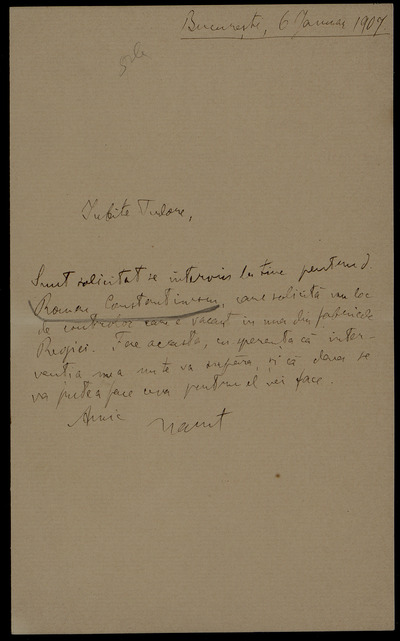 București, 6 Januar 1907
Iubite Tudore,
Sunt solicitat se intervin la tine pentru d
Roman Constantinescu, care solicită un loc
de controlor care e vacant in una din fabricele
Regiei. Fac aceasta, cu speranta că inter-
ventia mea nu te va supăra, și că daca se
va putea face ceva pentru el vei face.
Amic